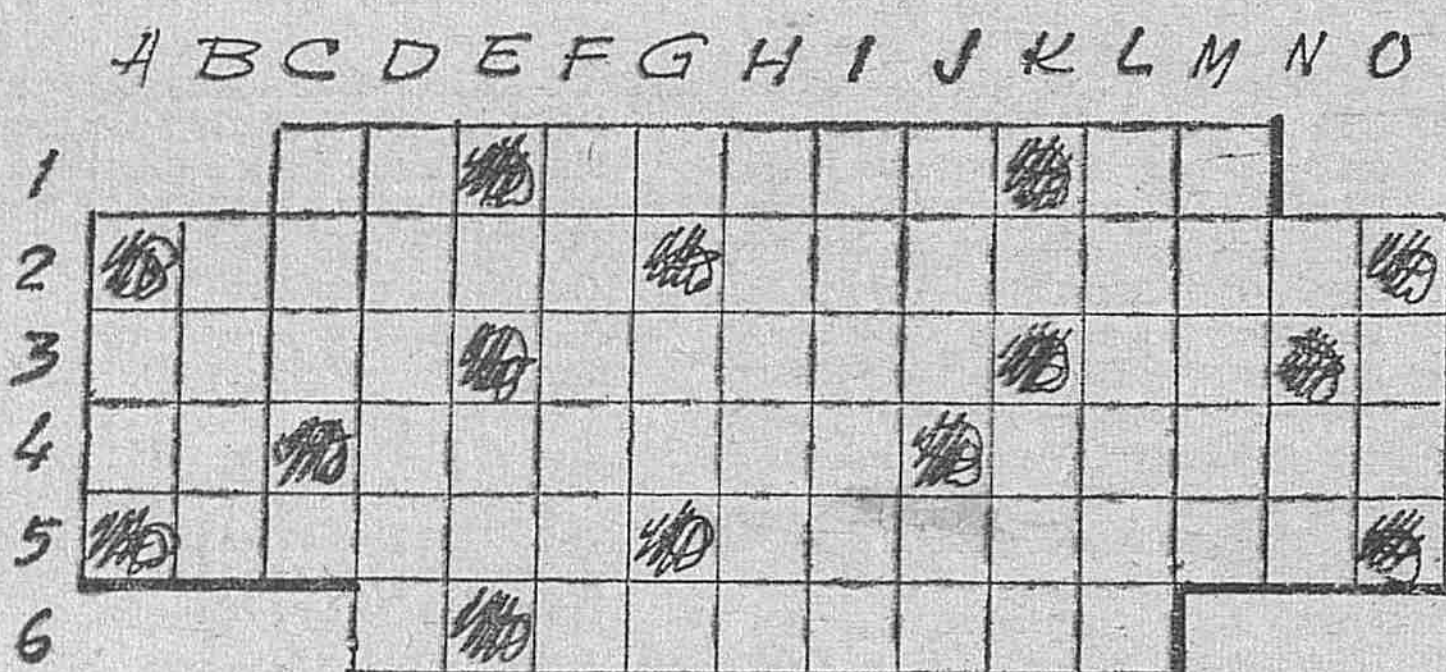 A B C D E F G H I J K L M N O
1
2
3
4
5
6